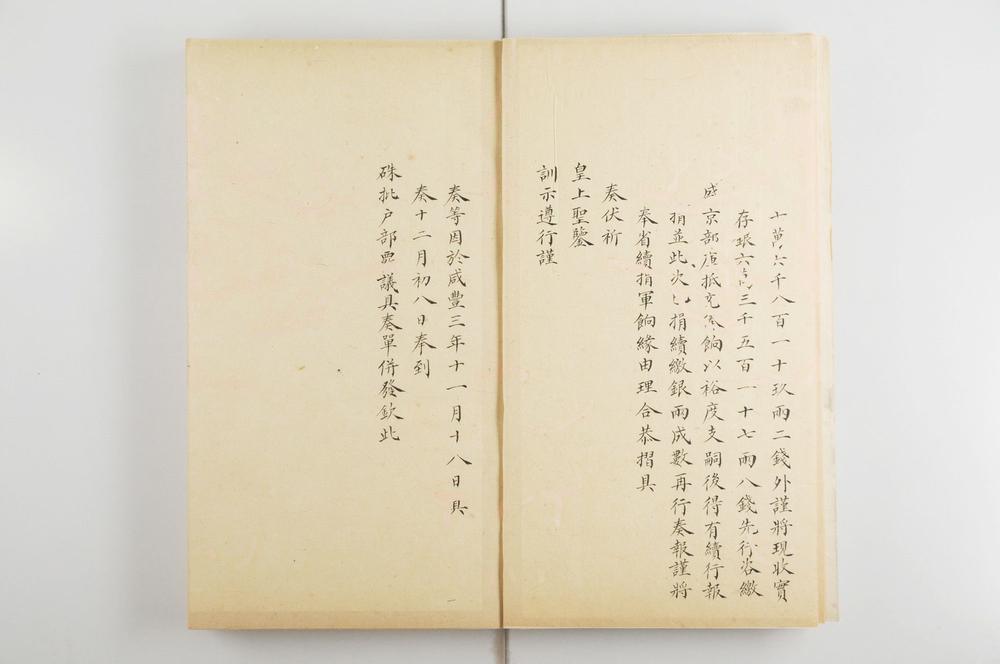 十萬六千八百一十玖兩二錢外謹將現收實
存銀六千三千五百一十七兩八錢先行咨繳
盛京部庫抵充餉以裕度支嗣後得有續行報
捐並此次捐續繳銀兩成數再行奏報謹將
奉省續捐軍餉緣由理合恭摺具
奏伏祈
皇上聖鑒
訓示遵行謹
奏等因於咸豐三年十一月十八日具
奏十二月初八日奉到
硃批戶部覈議具奏單併發欽此